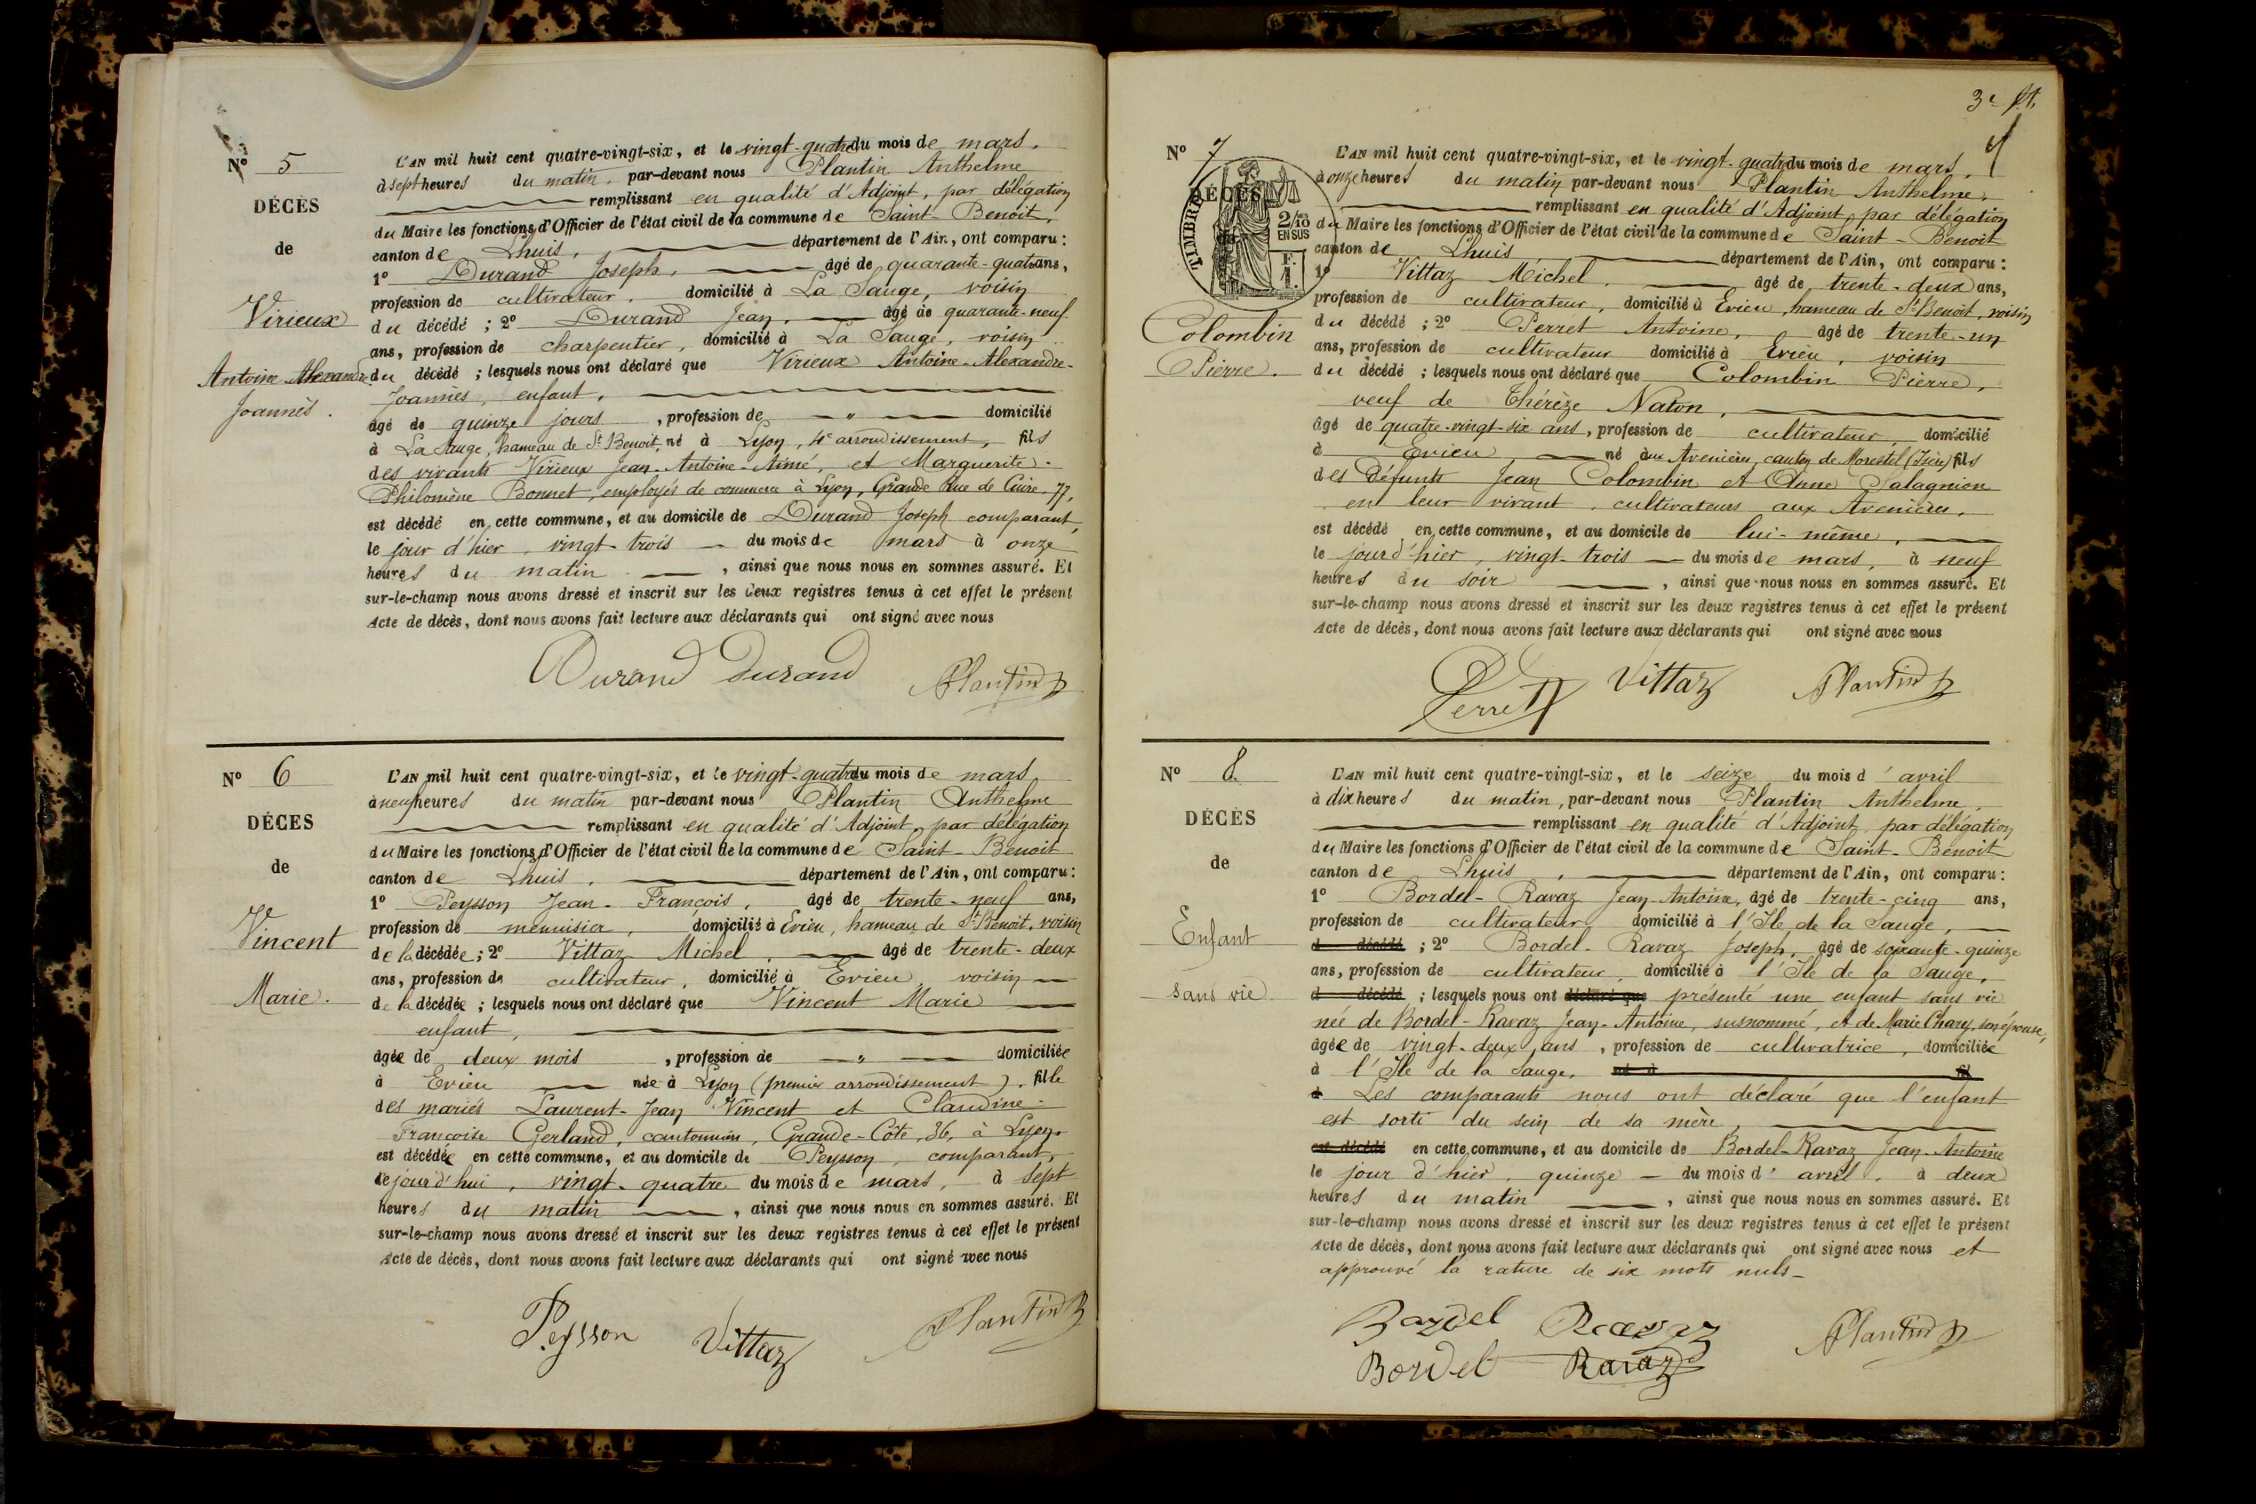 Nº 5
DÉCÈS
de
Virieux
Antoine Alexandre
Joannès.
L'AN mil huit cent quatre-vingt-six, et le vingt-quatre du mois de mars.
à sept heures du matin, par-devant nous Plantin Anthelme
remplissant en qualité d'Adjoint, par délégation
du Maire les fonctions d'Officier de l'état civil de la commune de Saint-Benoit,
canton de Lhuis, département de l'Ain, ont comparu :
1º Durand Joseph, âgé de quarante-quatre ans,
profession de cultivateur, domicilié à La Sauge, voisin
du décédé ; 2º Durand Jean, âgé de quarante-neuf
ans, profession de charpentier, domicilié à La Sauge, voisin
du décédé ; lesquels nous ont déclaré que Virieux Antoine-Alexandre-
Joannès, enfant,
âgé de quinze jours, profession de — " — domicilié
à La Sauge, hameau de St Benoit, né à Lyon, 4e arrondissement, fils
des vivants Virieux Jean-Antoine-Aimé, et Marguerite-
Philomène Bonnet, employés de commerce à Lyon, Grande Rue de Cuire, 77,
est décédé en cette commune, et au domicile de Durand Joseph comparant,
le jour d'hier, vingt-trois — du mois de mars à onze
heures du matin — , ainsi que nous nous en sommes assuré. Et
sur-le-champ nous avons dressé et inscrit sur les deux registres tenus à cet effet le présent
Acte de décès, dont nous avons fait lecture aux déclarants qui ont signé avec nous
Durand Durand Plantin
Nº 6
DÉCES
de
Vincent
Marie.
L'AN mil huit cent quatre-vingt-six, et le vingt-quatre du mois de mars
à neuf heures du matin par-devant nous Plantin Anthelme
remplissant en qualité d'Adjoint, par délégation
du Maire les fonctions d'Officier de l'état civil de la commune de Saint-Benoit
canton de Lhuis, département de l'Ain, ont comparu :
1º Peysson Jean-François, âgé de trente-neuf ans,
profession de menuisier, domicilié à Evieu, hameau de St Benoit, voisin
de la décédée ; 2º Vittaz Michel, âgé de trente-deux
ans, profession de cultivateur, domicilié à Evieu, voisin —
de la décédée ; lesquels nous ont déclaré que Vincent Marie
enfant,
âgée de deux mois, profession de — " — domiciliée
à Evieu — née à Lyon (premier arrondissement), fille
des mariés Laurent-Jean Vincent et Claudine-
Françoise Gerland, cantonnier, Grande-Côte, 36, à Lyon.
est décédée en cette commune, et au domicile de Peysson, comparant,
le jour d'hui, vingt-quatre du mois de mars, à sept
heures du matin — , ainsi que nous nous en sommes assuré. Et
sur-le-champ nous avons dressé et inscrit sur les deux registres tenus à cet effet le présent
Acte de décès, dont nous avons fait lecture aux déclarants qui ont signé avec nous
Peysson Vittaz Plantin
3e
Nº 7
DÉCÈS
TIMBRE
2/10 EN SUS
F. 1.
Colombin
Pierre.
L'AN mil huit cent quatre-vingt-six, et le vingt-quatre du mois de mars,
à onze heures du matin par-devant nous Plantin Anthelme,
remplissant en qualité d'Adjoint, par délégation
du Maire les fonctions d'Officier de l'état civil de la commune de Saint-Benoit
canton de Lhuis, département de l'Ain, ont comparu :
1º Vittaz Michel, âgé de trente-deux ans,
profession de cultivateur, domicilié à Evieu, hameau de St Benoit, voisin
du décédé ; 2º Perret Antoine, âgé de trente-un
ans, profession de cultivateur domicilié à Evieu, voisin
du décédé ; lesquels nous ont déclaré que Colombin Pierre,
veuf de Thérèze Naton,
âgé de quatre-vingt-six ans, profession de cultivateur, domicilié
à Evieu, — né aux Avenières, canton de Morestel (Isère) fils
des défunts Jean Colombin et Anne Salagnien
en leur vivant cultivateurs aux Avenières,
est décédé en cette commune, et au domicile de lui-même,
le jour d'hier, vingt-trois — du mois de mars, à neuf
heures du soir — , ainsi que nous nous en sommes assuré. Et
sur-le-champ nous avons dressé et inscrit sur les deux registres tenus à cet effet le présent
Acte de décès, dont nous avons fait lecture aux déclarants qui ont signé avec nous
Perret Vittaz Plantin
Nº 8.
DÉCÈS
de
Enfant
sans vie
L'AN mil huit cent quatre-vingt-six, et le seize du mois d'avril
à dix heures du matin, par-devant nous Plantin Anthelme,
remplissant en qualité d'Adjoint par délégation
du Maire les fonctions d'Officier de l'état civil de la commune de Saint-Benoit
canton de Lhuis, département de l'Ain, ont comparu :
1º Bordel-Ravaz Jean-Antoine, âgé de trente-cinq ans,
profession de cultivateur domicilié à l'Ile de la Sauge, —
d décédé ; 2º Bordel-Ravaz Joseph, âgé de soixante-quinze
ans, profession de cultivateur, domicilié à l'Ile de la Sauge,
d décédé ; lesquels nous ont déclaré que présenté une enfant sans vie
née de Bordel-Ravaz Jean-Antoine, susnommé, et de Marie Chary, son épouse,
âgée de vingt-deux ans, profession de cultivatrice, domiciliée
à l'Ile de la Sauge, né à fil
d Les comparants nous ont déclaré que l'enfant
est sorti du sein de sa mère,
est décédé en cette commune, et au domicile de Bordel-Ravaz Jean-Antoine
le jour d'hier, quinze — du mois d'avril, à deux
heures du matin — , ainsi que nous nous en sommes assuré. Et
sur-le-champ nous avons dressé et inscrit sur les deux registres tenus à cet effet le présent
Acte de décès, dont nous avons fait lecture aux déclarants qui ont signé avec nous et
approuvé la rature de six mots nuls—
Bordel Ravaz Plantin
Bordel Ravaz